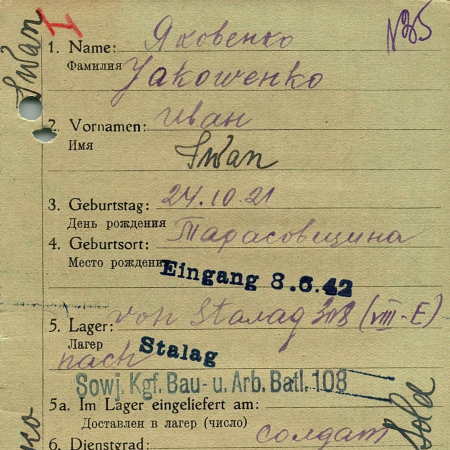 Iwan
I
№35
1. Name: Яковенко
Фамилия Jakowenko
2. Vornamen: Иван
Имя Iwan
3. Geburtstag: 24.10.21
День рождения
4. Geburtsort: Тарасовщина
Место рождения
Eingang 8.6.42
5. Lager: von Stalag 308 (VIII-E)
Лагер
nach Stalag
Sowj. Kgf. Bau- u. Arb. Batl. 108
5a. Im Lager eingeliefert am:
Доставлен в лагер (число)
6. Dienstgrad: солдат
Sold